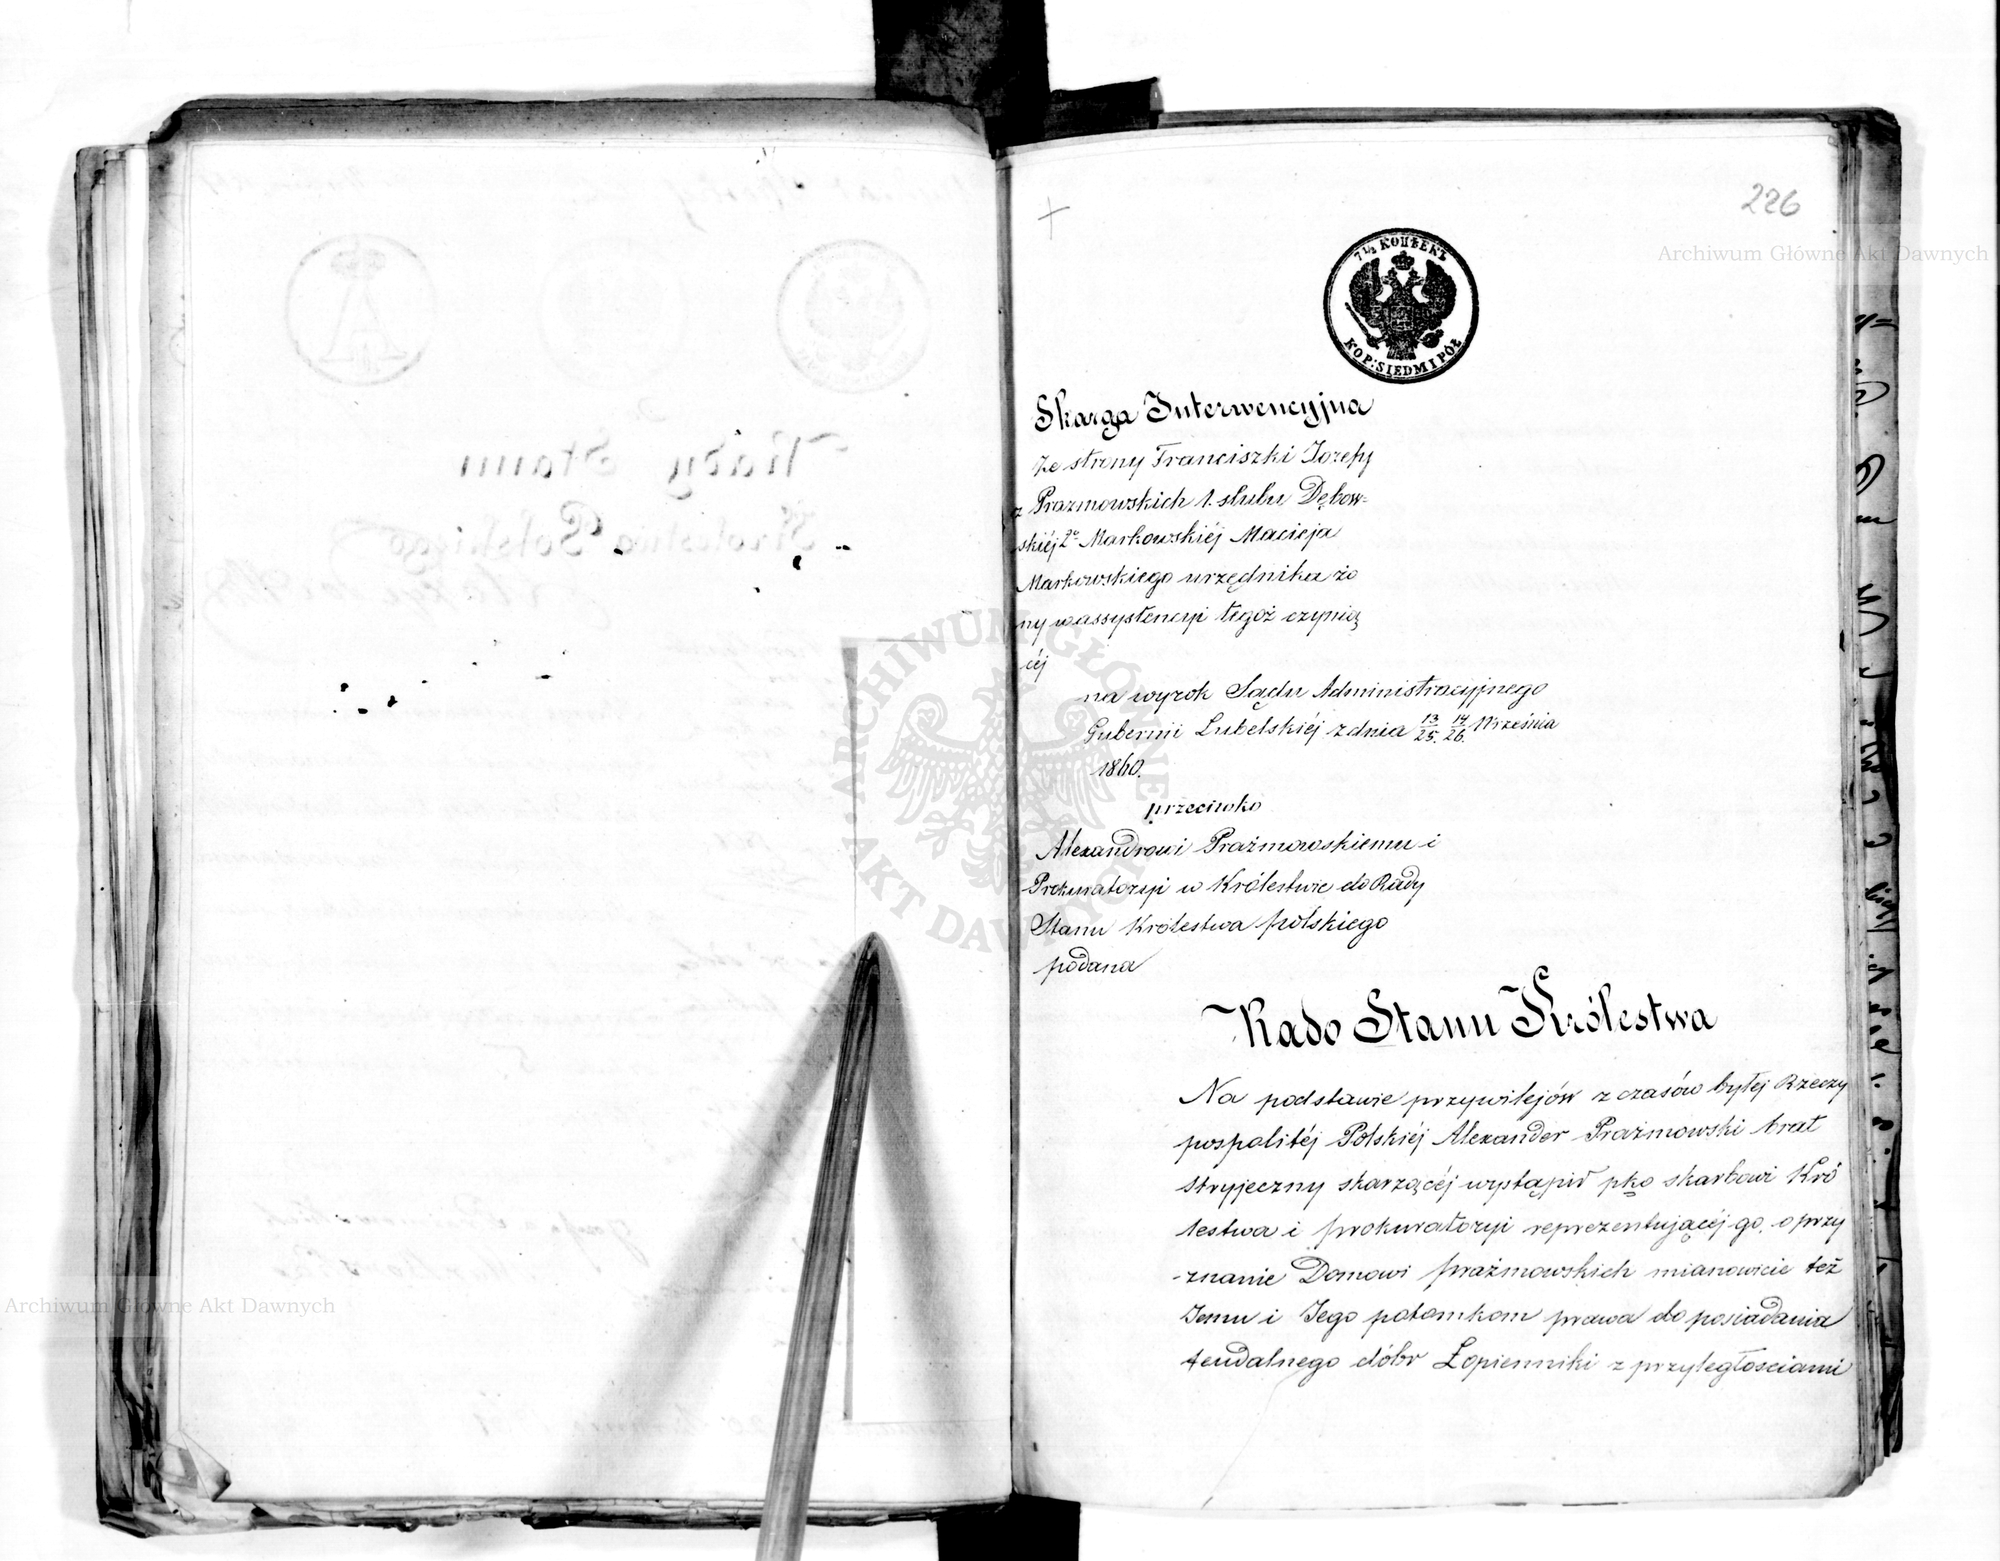 226
7½ КОПѢЕКЪ
KOP: SIEDM I PÓŁ
Skarga Interwencyjna
ze strony Franciszki Jozefy
z Prazmowskich 1. slubu Dębow-
skiéj 2o Markowskiéj Macieja
Markowskiego urzędnika żo
ny wassystencyi tegoż czynią
céj
na wyrok Sądu Administracyjnego
Gubernii Lubelskiéj z dnia 13/25. 14/26. Września
1860.
przeciwko
Alexandrowi Prażmowskiemu i
Prokuratoryi w Królestwie do Rady
Stanu Królestwa polskiego
podana
Rado Stanu Królestwa
Na podstawie przywilejów z czasów byłej Rzeczy
pospolitéj Polskiéj Alexander Prażmowski brat
stryjeczny skarzącéj wystąpił pko skarbowi Kró
lestwa i prokuratoryi reprezentującéj go, o przy
-znanie Domowi prażmowskich mianowicie też
Jemu i Jego potomkom prawa do posiadania
feudalnego dóbr Łopienniki z przyległosciami
Archiwum Główne Akt Dawnych
Archiwum Główne Akt Dawnych
ARCHIWUM GŁÓWNE AKT DAWNYCH